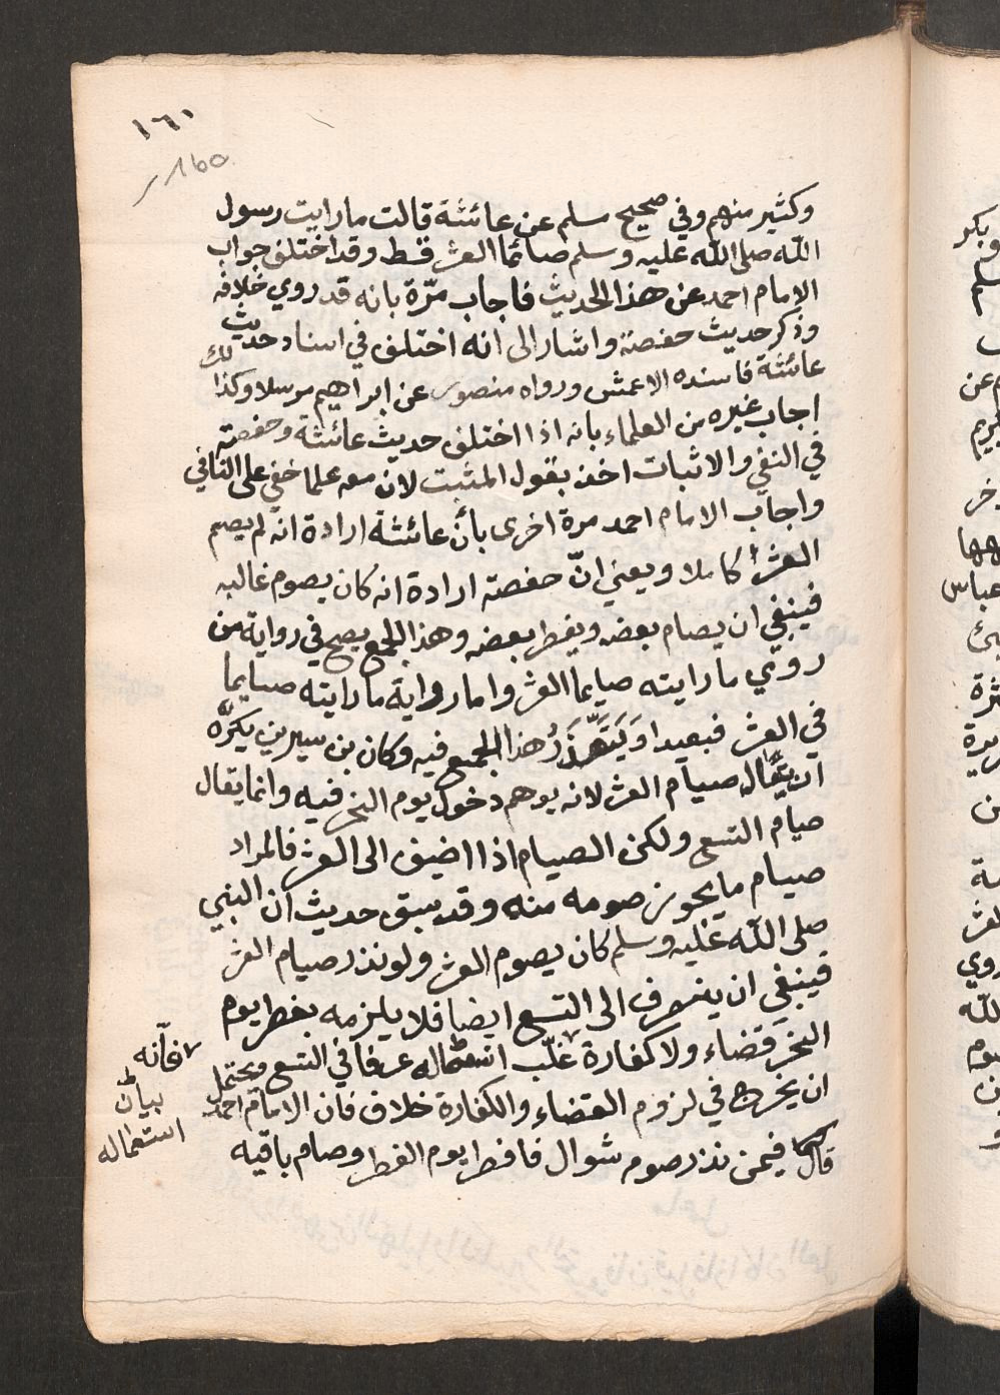 ١٦١
وكثير منهم وفي صحيح مسلم عن عائشة قالت مارايت رسول
الله صلى الله عليه وسلم صائما العشر قط وقد اختلف جواب
الامام احمد عن هذا الحديث فاجاب مرّة بانه قد روي خلافه
وذكر حديث حفصة واشار الى انه اختلف في اسناد حديث
عائشة فاسنده الاعمش ورواه منصور عن ابراهيم مرسلا وكذلك
اجاب غيره من العلماء بانه اذا اختلف حديث عائشة وحفصة
في النفي والاثبات اخذ بقول المثبت لان معه علما خفي على النافي
واجاب الامام احمد مرة اخرى بأنّ عائشة ارادة انه لم يصم
العشر كاملا ويعني انّ حفصة ارادة انه كان يصوم غالبه
فينبغي ان يصام بعضه ويفطر بعضه وهذا الجمع يصح في رواية من
روي مارايته صايما العشر واما رواية مارايته صايما
في العشر فبعيد او يَتَعَذَّرُ هذا الجمع فيه وكان بن سيرين يكره
ان يقال صيام العشر لانه يوهم دخول يوم النحر فيه وانما يقال
صيام التسع ولكن الصيام اذا اضيف الى العشر فالمراد
صيام مايجوز صومه منه وقد سبق حديث ان النبي
صلى الله عليه وسلم كان يصوم العشر ولو نذر صيام العشر
فينبغي ان ينصرف الى التسع ايضا فلا يلزمه بفطر يوم
النحر قضاء ولا كفارة غلّب استعماله عرفا في التسع ويحتمل
ان يخرج في لزوم القضاء والكفارة خلاف فان الامام احمد
قال فيمن نذر صوم شوال فافطر يوم الفطر وصام باقيه
فانه
بيان
استعماله